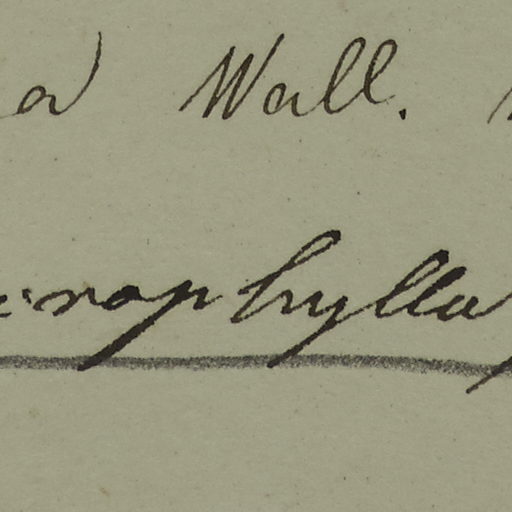 a Wall.
rophylla